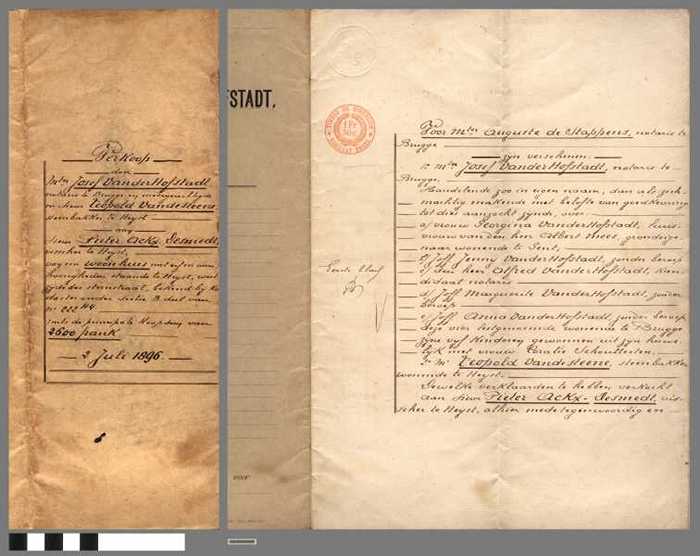 Verkoop
door
Mter Josef VanderHofstadt
notaris te Brugge en medeverkoopers
en Heer Leopold Vandesteene
steenbakker te Heyst
aan
Heer Pieter Ackx-Desmedt
visscher te Heyst,
van een woonhuis met erf en aan-
hoorigheden staande te Heyst, west
zijde der statiestraat, bekend bij Ka-
daster onder sectie B deel van
nr 222
mits de principale koopsom van
2600 frank
2 Juli 1896
FSTADT,
Voor Mter Auguste de Stappens, notaris te
Brugge
zyn verschenen:
1° Mter Josef VanderHofstadt, notaris te
Brugge,
Handelende zoo in eigen naam, dan als zich
machtig makende met belofte van goedkeuring
tot dies aanzocht zynde, over
a/ vrouw Georgina VanderHofstadt, huis-
vrouw van den heer Albert Mees, grondeige-
naar wonende te Gent,
b/ Jeff. Jenny VanderHofstadt, zonder beroep
c/ den heer Alfred VanderHofstadt, kan-
didaat notaris
d/ Jeff. Marguerite VanderHofstadt, zonder
beroep
e/ Jeff. Anna VanderHofstadt, zonder beroep
deze vier letstgenoemde wonende te Brugge
zyne vyf kinderen gewonnen uit zyn huwe-
lyk met vrouw Coralie Schoutteeten.
2° Mr Leopold Vandesteene, steenbakker
wonende te Heyst.
Dewelke verklaarden te hebben verkocht
aan Heer Pieter Ackx-Desmedt, vis-
scher te Heyst, alhier medetegenwoordig en
Eerste blad